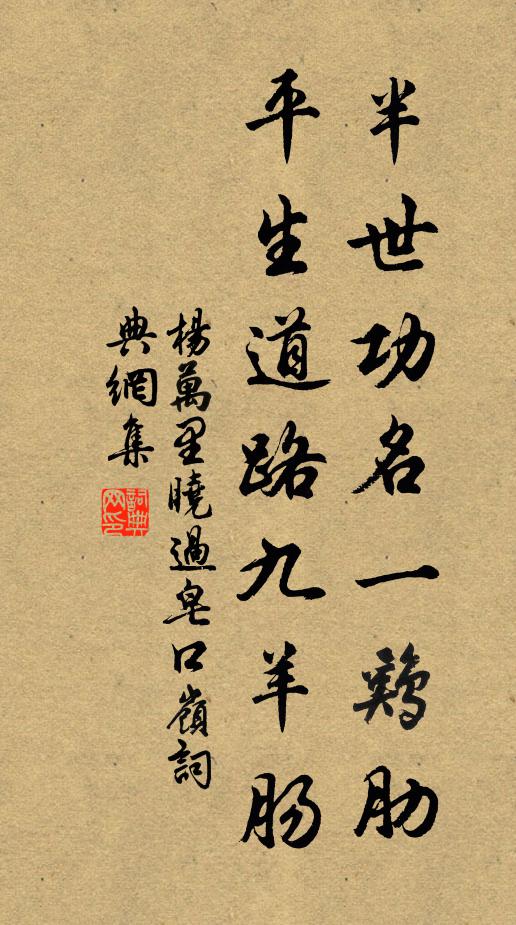 半世功名一鷄肋
平生道路九羊肠
楊萬里曉過皂口嶺詞
典網集
詞典網印